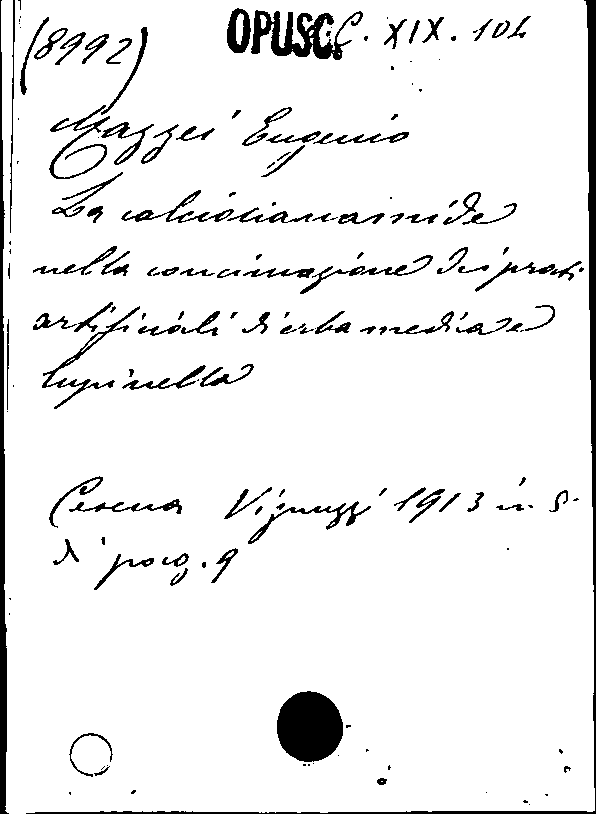 (8992) OPUSC. C. XIX. 104
Mazzei Eugenio
La calciocianamide
nella concimazione dei prati
artificiali di erba medica e
lupinella
Cesena Vignuzzi 1913 in 8°
di pag. 9